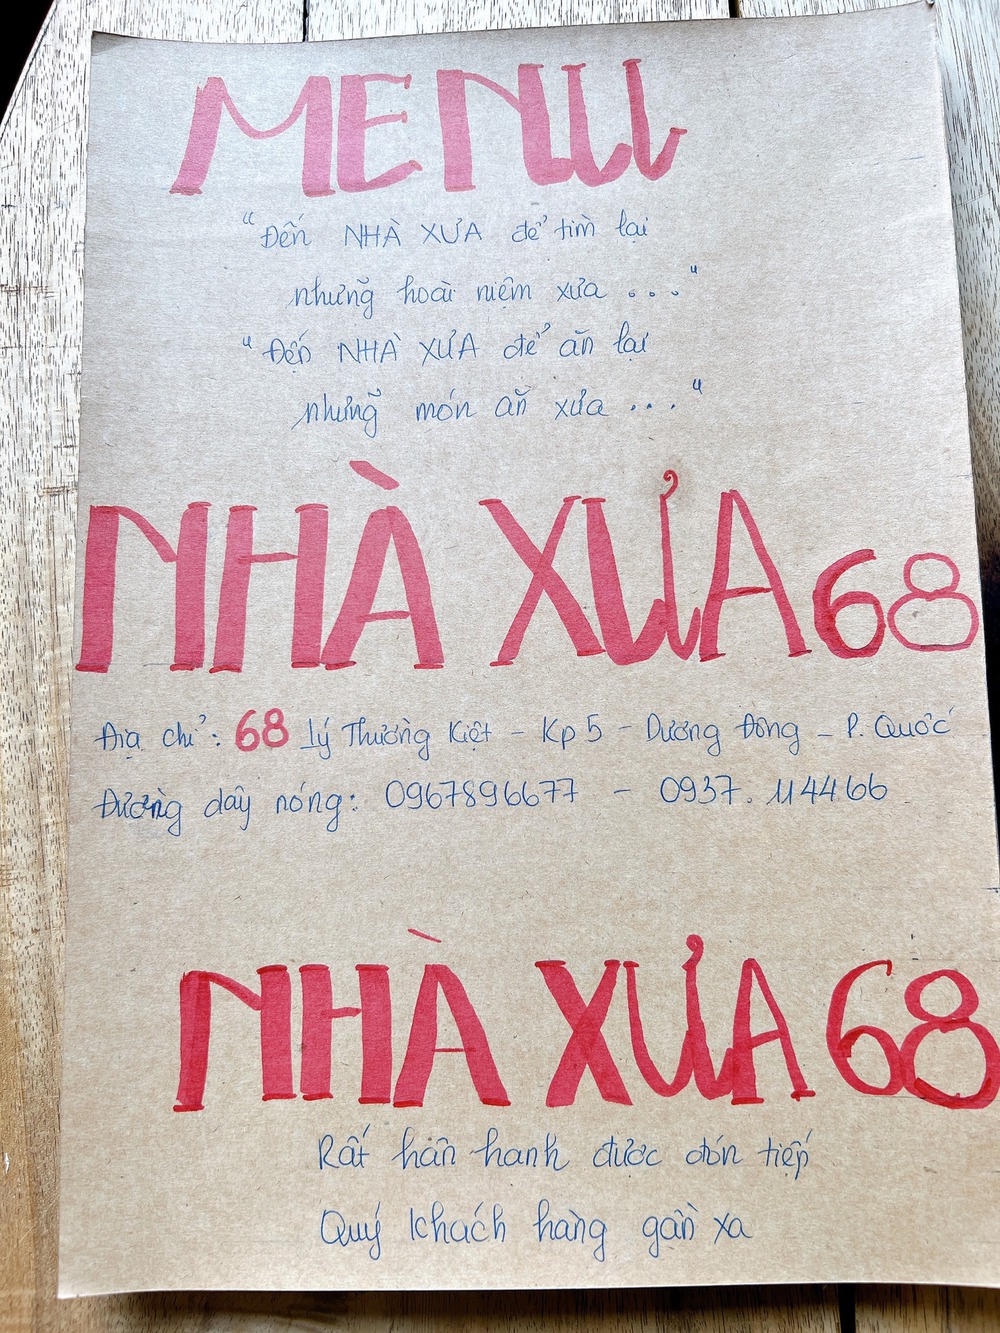 MENU
"Đến NHÀ XƯA để tìm lại
những hoài niệm xưa ..."
"Đến NHÀ XƯA để ăn lại
những món ăn xưa ..."
NHÀ XƯA 68
Địa chỉ: 68 Lý Thường Kiệt - Kp 5 - Dương Đông - P. Quốc
Đường dây nóng: 0967896677 - 0937.114466
NHÀ XƯA 68
Rất hân hạnh được đón tiếp
Quý khách hàng gần xa